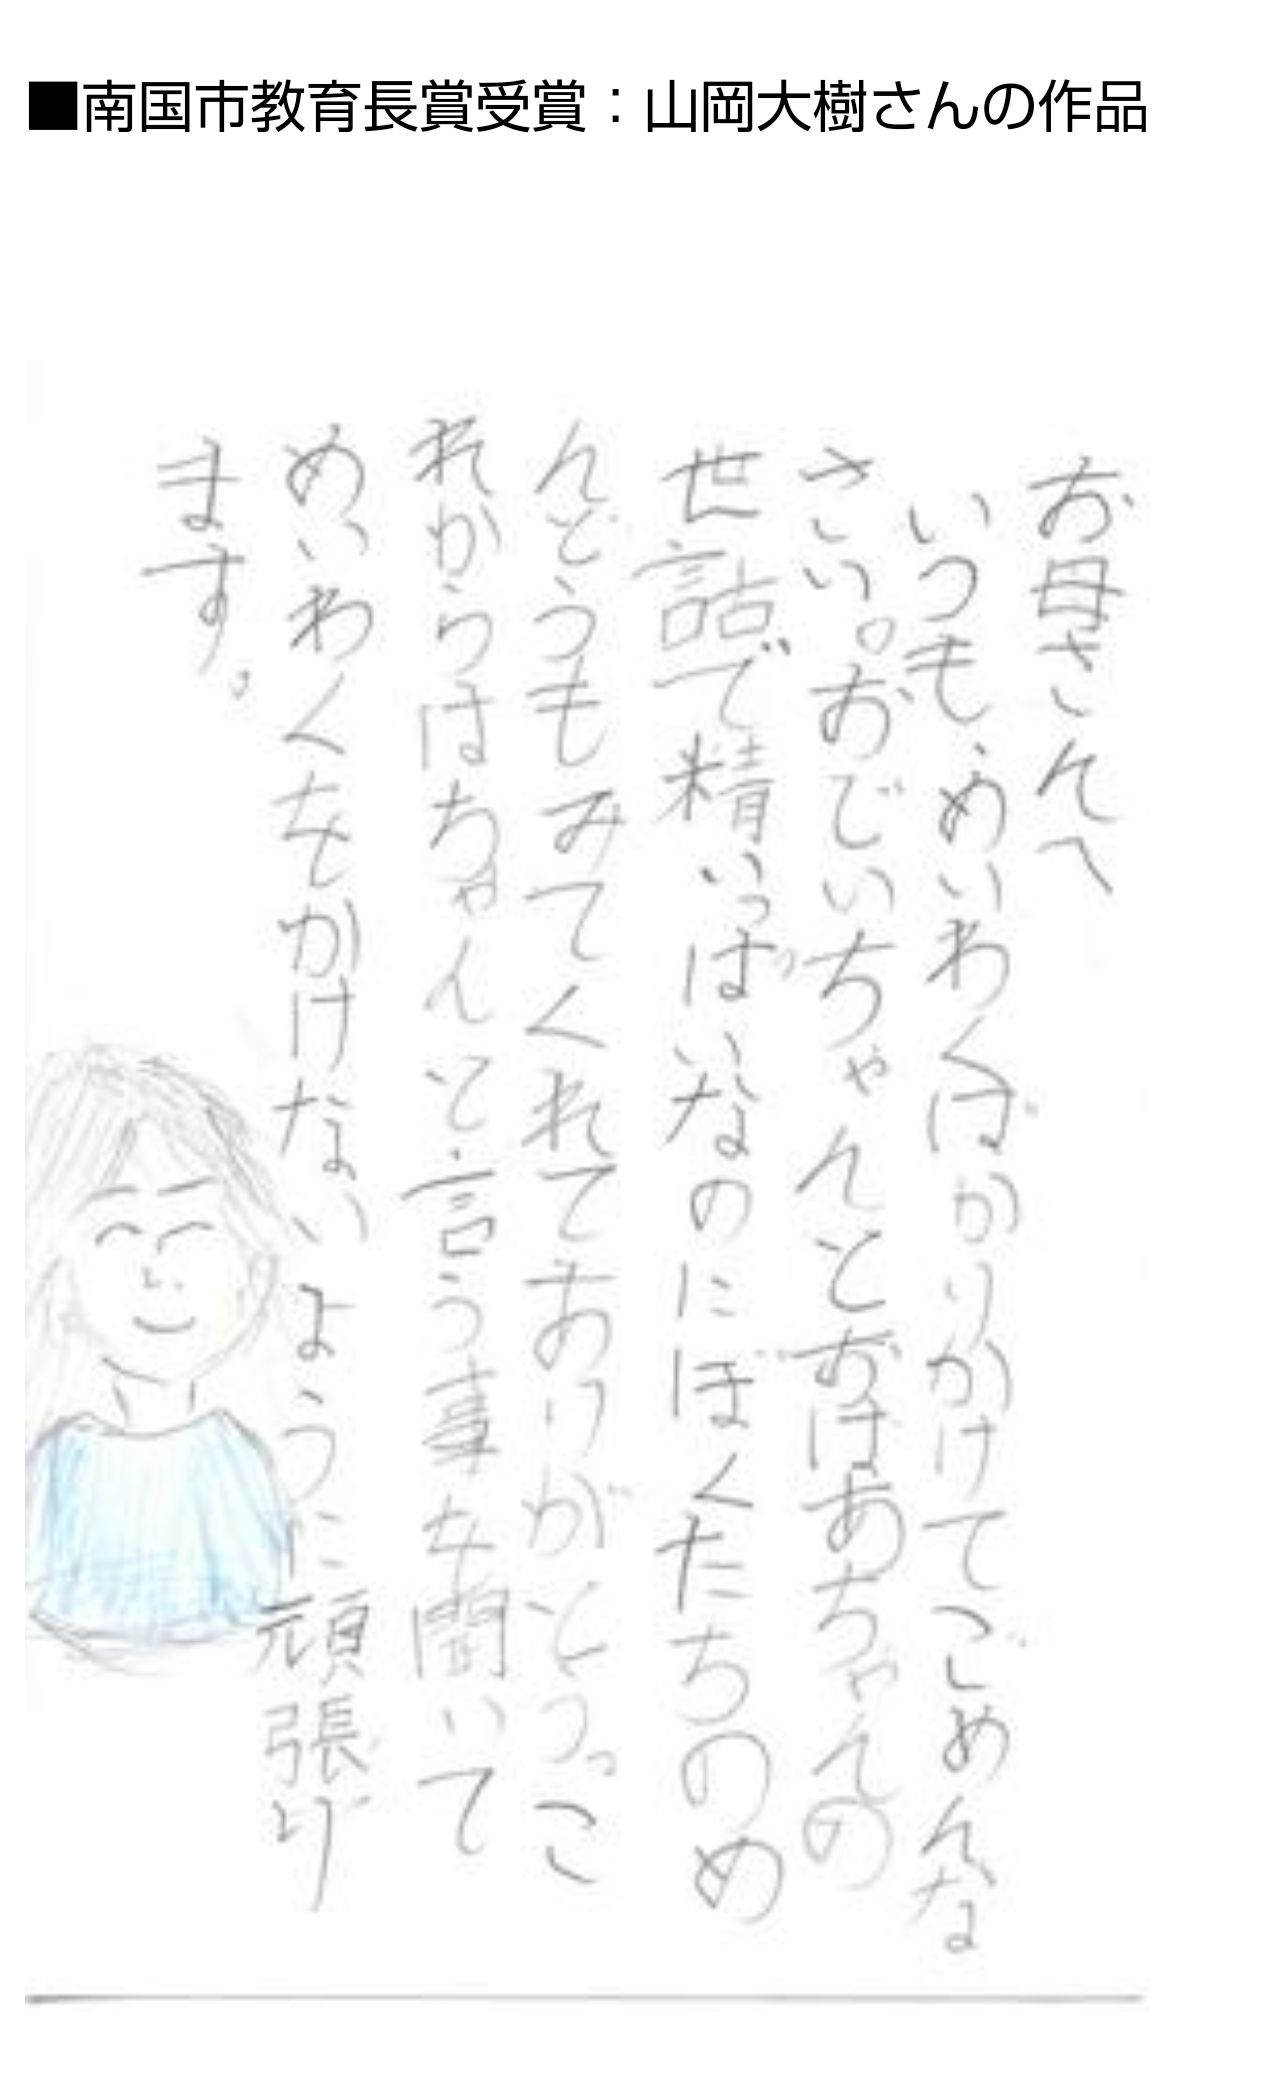 ■南国市教育長賞受賞：山岡大樹さんの作品
お母さんへ
いつも、めいわくばかりかけてごめんな
さい。おじいちゃんとおばあちゃんの
世詁で精いっぱいなのにぼくたちのめ
んどうもみてくれてありがとうっこ
れからはちゃんと言う事を聞いて
めいわくをかけないように頑張り
ます。